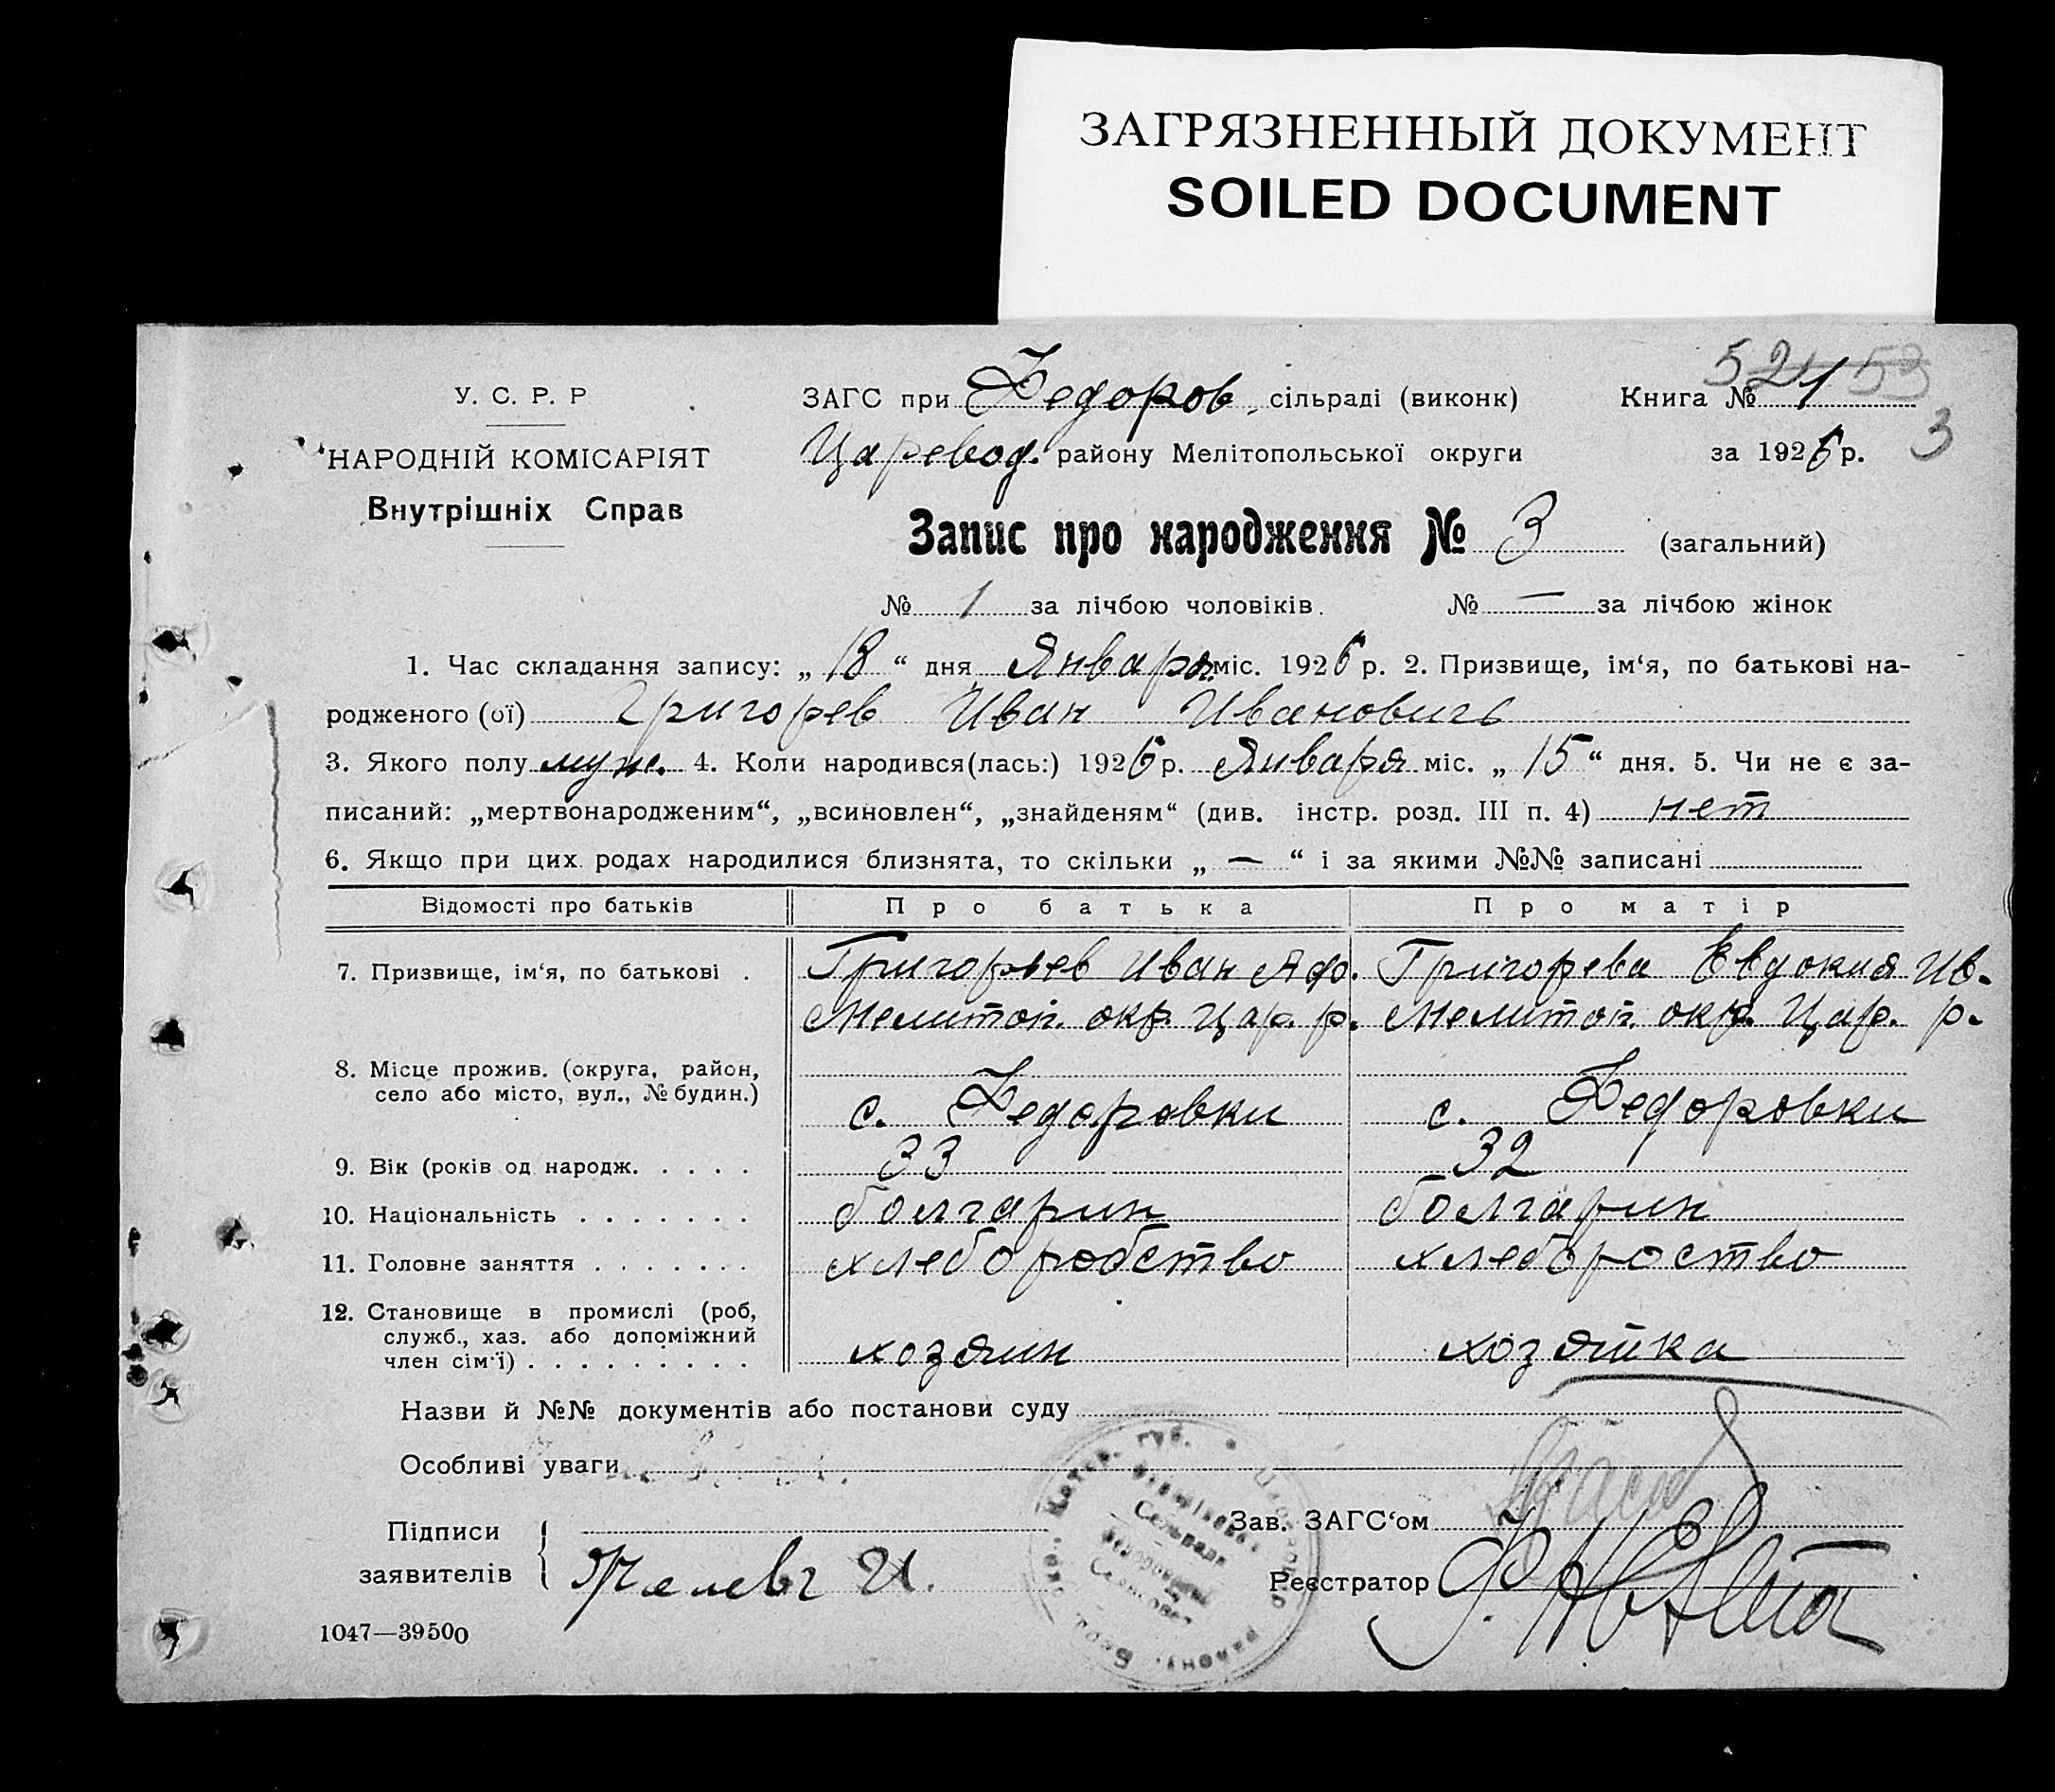 ЗАГРЯЗНЕННЫЙ ДОКУМЕНТ
SOILED DOCUMENT
52 53
У. С. Р. Р
ЗАГС при Федоров. сільраді (виконк)
Книга № 1
НАРОДНІЙ КОМІСАРІЯТ
Царевод. району Мелітопольської округи
за 1926 р.
3
Внутрішніх Справ
Запис про народження № 3 (загальний)
№ 1 за лічбою чоловіків. № — за лічбою жінок
1. Час складання запису: „ 18 “ дня Января міс. 1926 р. 2. Призвище, ім‘я, по батькові на-
родженого (ої) Григорев Иван Иванович
3. Якого полу муж. 4. Коли народився(лась:) 1926 р. Января міс. „ 15 “ дня. 5. Чи не є за-
писаний: „мертвонародженим“, „всиновлен“, „знайденям“ (див. інстр. розд. III п. 4) нет
6. Якщо при цих родах народилися близнята, то скільки „ — “ і за якими №№ записані
Відомості про батьків Про батька Про матір
7. Призвище, ім‘я, по батькові . Григорьев Иван Афо. Григорева Евдокия Ив.
Мелитоп. окр. Цар. р. Мелитоп. окр. Цар. р.
8. Місце прожив. (округа, район,
село або місто, вул., № будин.) с. Федоровки с. Федоровки
9. Вік (років од народж. . . . . 33 32
10. Національність . . . . . . . болгарин болгарин
11. Головне заняття . . . . . . . хлеборобство хлебороство
12. Становище в промислі (роб,
служб., хаз. або допоміжний
член сім‘ї) . . . . . . . . . хозяин хозяйка
Назви й №№ документів або постанови суду
Особливі уваги
Зав. ЗАГС‘ом
Підписи
заявителів
Реєстратор
1047—39500